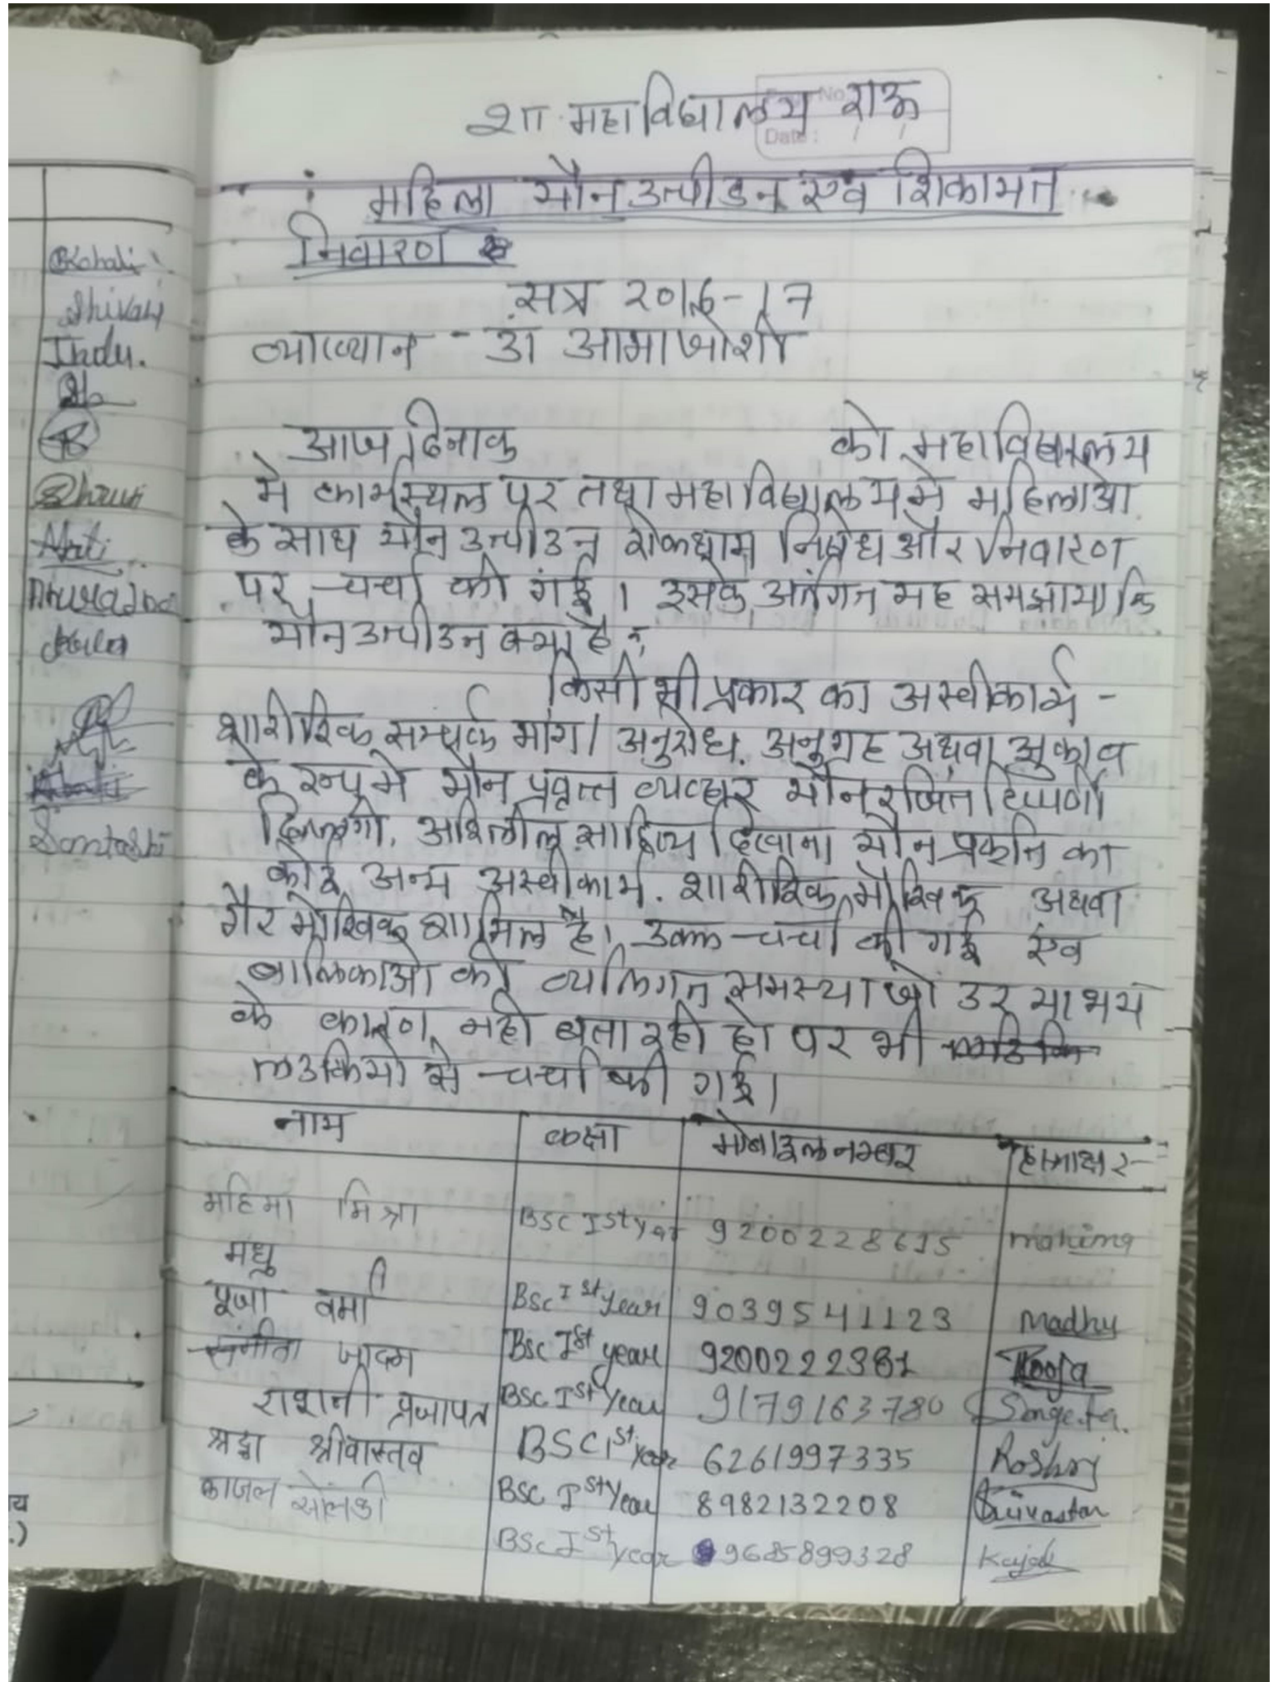 शा. महाविद्यालय राऊ
Page No.
Date : / /
महिला यौन उत्पीडन एवं शिकायत
निवारण
सत्र 2016-17
व्याख्यान - डा आभा जोशी
आज दिनाक को महाविद्यालय
मे कार्यस्थल पर तथा महाविद्यालय मे महिलाओ
के साथ यौन उत्पीडन रोकथाम निषेध और निवारण
पर चर्चा की गई। इसके अर्तगत यह समझाया कि
यौन उत्पीडन क्या है :
किसी भी प्रकार का अस्वीकार्य -
शारीरिक सम्पर्क मांग / अनुरोध. अनुग्रह अथवा झुकाव
के रूप मे यौन प्रवृत्त व्यवहार यौन रंजित टिप्पणी
दिल्लगी, अश्लिील साहित्य दिखाना यौन प्रकृति का
कोई अन्य अस्वीकार्य. शारीरिक मौखिक अथवा
गैर मौखिक शामिल है। उक्त चर्चा की गई एंव
बालिकाओ की व्यक्तिगत समस्या जो डर या भय
के कारण नही बता रही हो पर भी
लडकियो से चर्चा की गई।
नाम कक्षा मोबाइल नम्बर हस्ताक्षर-
महिमा मिश्रा BSC Ist year 9200228615 mahima
मधु BSc Ist year 9039541123 Madhu
पूजा वर्मा BSc Ist year 9200222381 Pooja
संगीता जादम BSc Ist year 9179163780 Sangeeta
राशनी प्रजापत BSC Ist year 6261997335 Roshni
श्रद्धा श्रीवास्तव BSc Ist Year 8982132208 Srivastav
काजल सोलंकी BSc Ist year 9685899328 Kajal
Shivani
Indu.
Santoshi